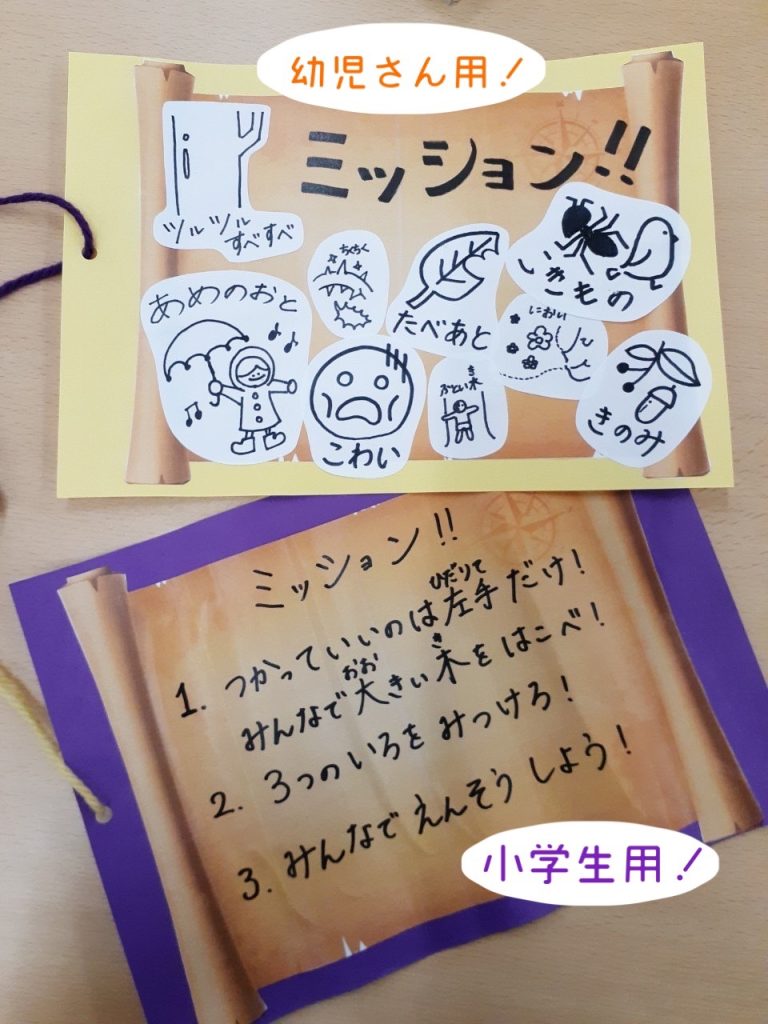 幼児さん用!
ミッション!!
ツルツル
すべすべ
ちくちく
たべあと
いきもの
あめのおと
におい
こわい
き
ふとい木
きのみ
ミッション!!
ひだりて
1. つかっていいのは左手だけ!
おお き
みんなで大きい木をはこべ!
2. 3つのいろをみつけろ!
3. みんなでえんそうしよう!
小学生用!